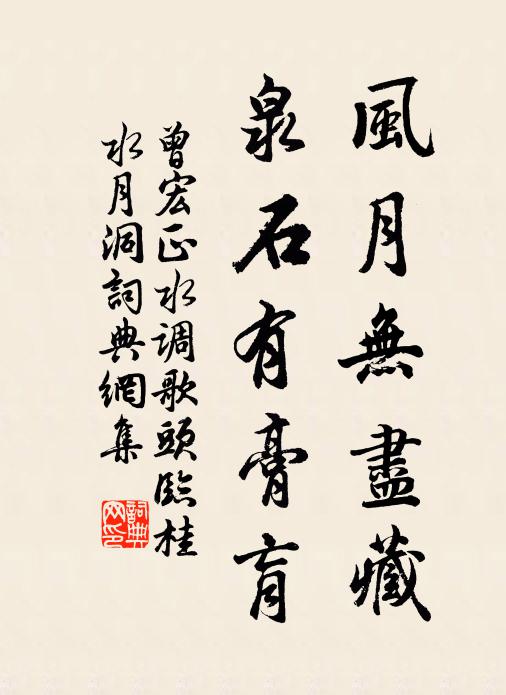 風月無盡藏
泉石有膏肓
曾宏正水调歌頭臨桂
水月洞詞典網集
詞典网印